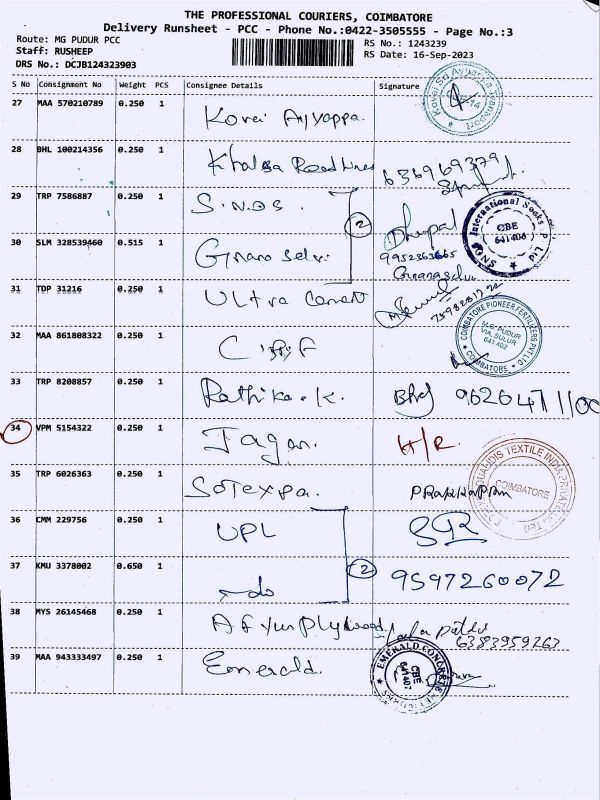 THE PROFESSIONAL COURIERS, COIMBATORE
Delivery Runsheet - PCC - Phone No.:0422-3505555 - Page No.:3
Route: MG PUDUR PCC
Staff: RUSHEEP
DRS No.: DCJB124323903
RS No.: 1243239
RS Date: 16-Sep-2023
S No Consignment No Weight PCS Consignee Details Signature
27 MAA 570210789 0.250 1 Kovai Ayyappa.
28 BHL 100214356 0.250 1 Khalsa Roadlines 6369693791
29 TRP 7586887 0.250 1 S.N.O.S. Dhupal
International CBE 641406
30 SLM 328539460 0.515 1 Gnana Selvi 9952363665
Gnanaselvi
2
31 TDP 31216 0.250 1 Ultra Cement
COIMBATORE PIONEER FERTILIZERS PVT LTD
M.G. PUDUR VIA, SULUR 641 402
COIMBATORE
32 MAA 861808322 0.250 1
33 TRP 8208857 0.250 1 Rathika.K. 9626471100
34 VPM 5154322 0.250 1 Jagan. H/R.
35 TRP 6026363 0.250 1 Sotexpa.
TEXTILE INDIA PRIVATE
COIMBATORE
36 CMM 229756 0.250 1 UPL
37 KMU 3378002 0.650 1 do 2 9597260072
38 MYS 26145468 0.250 1 6383959263
39 MAA 943333497 0.250 1 Emerald.
EMERALD CONCRETE
CBE 641407